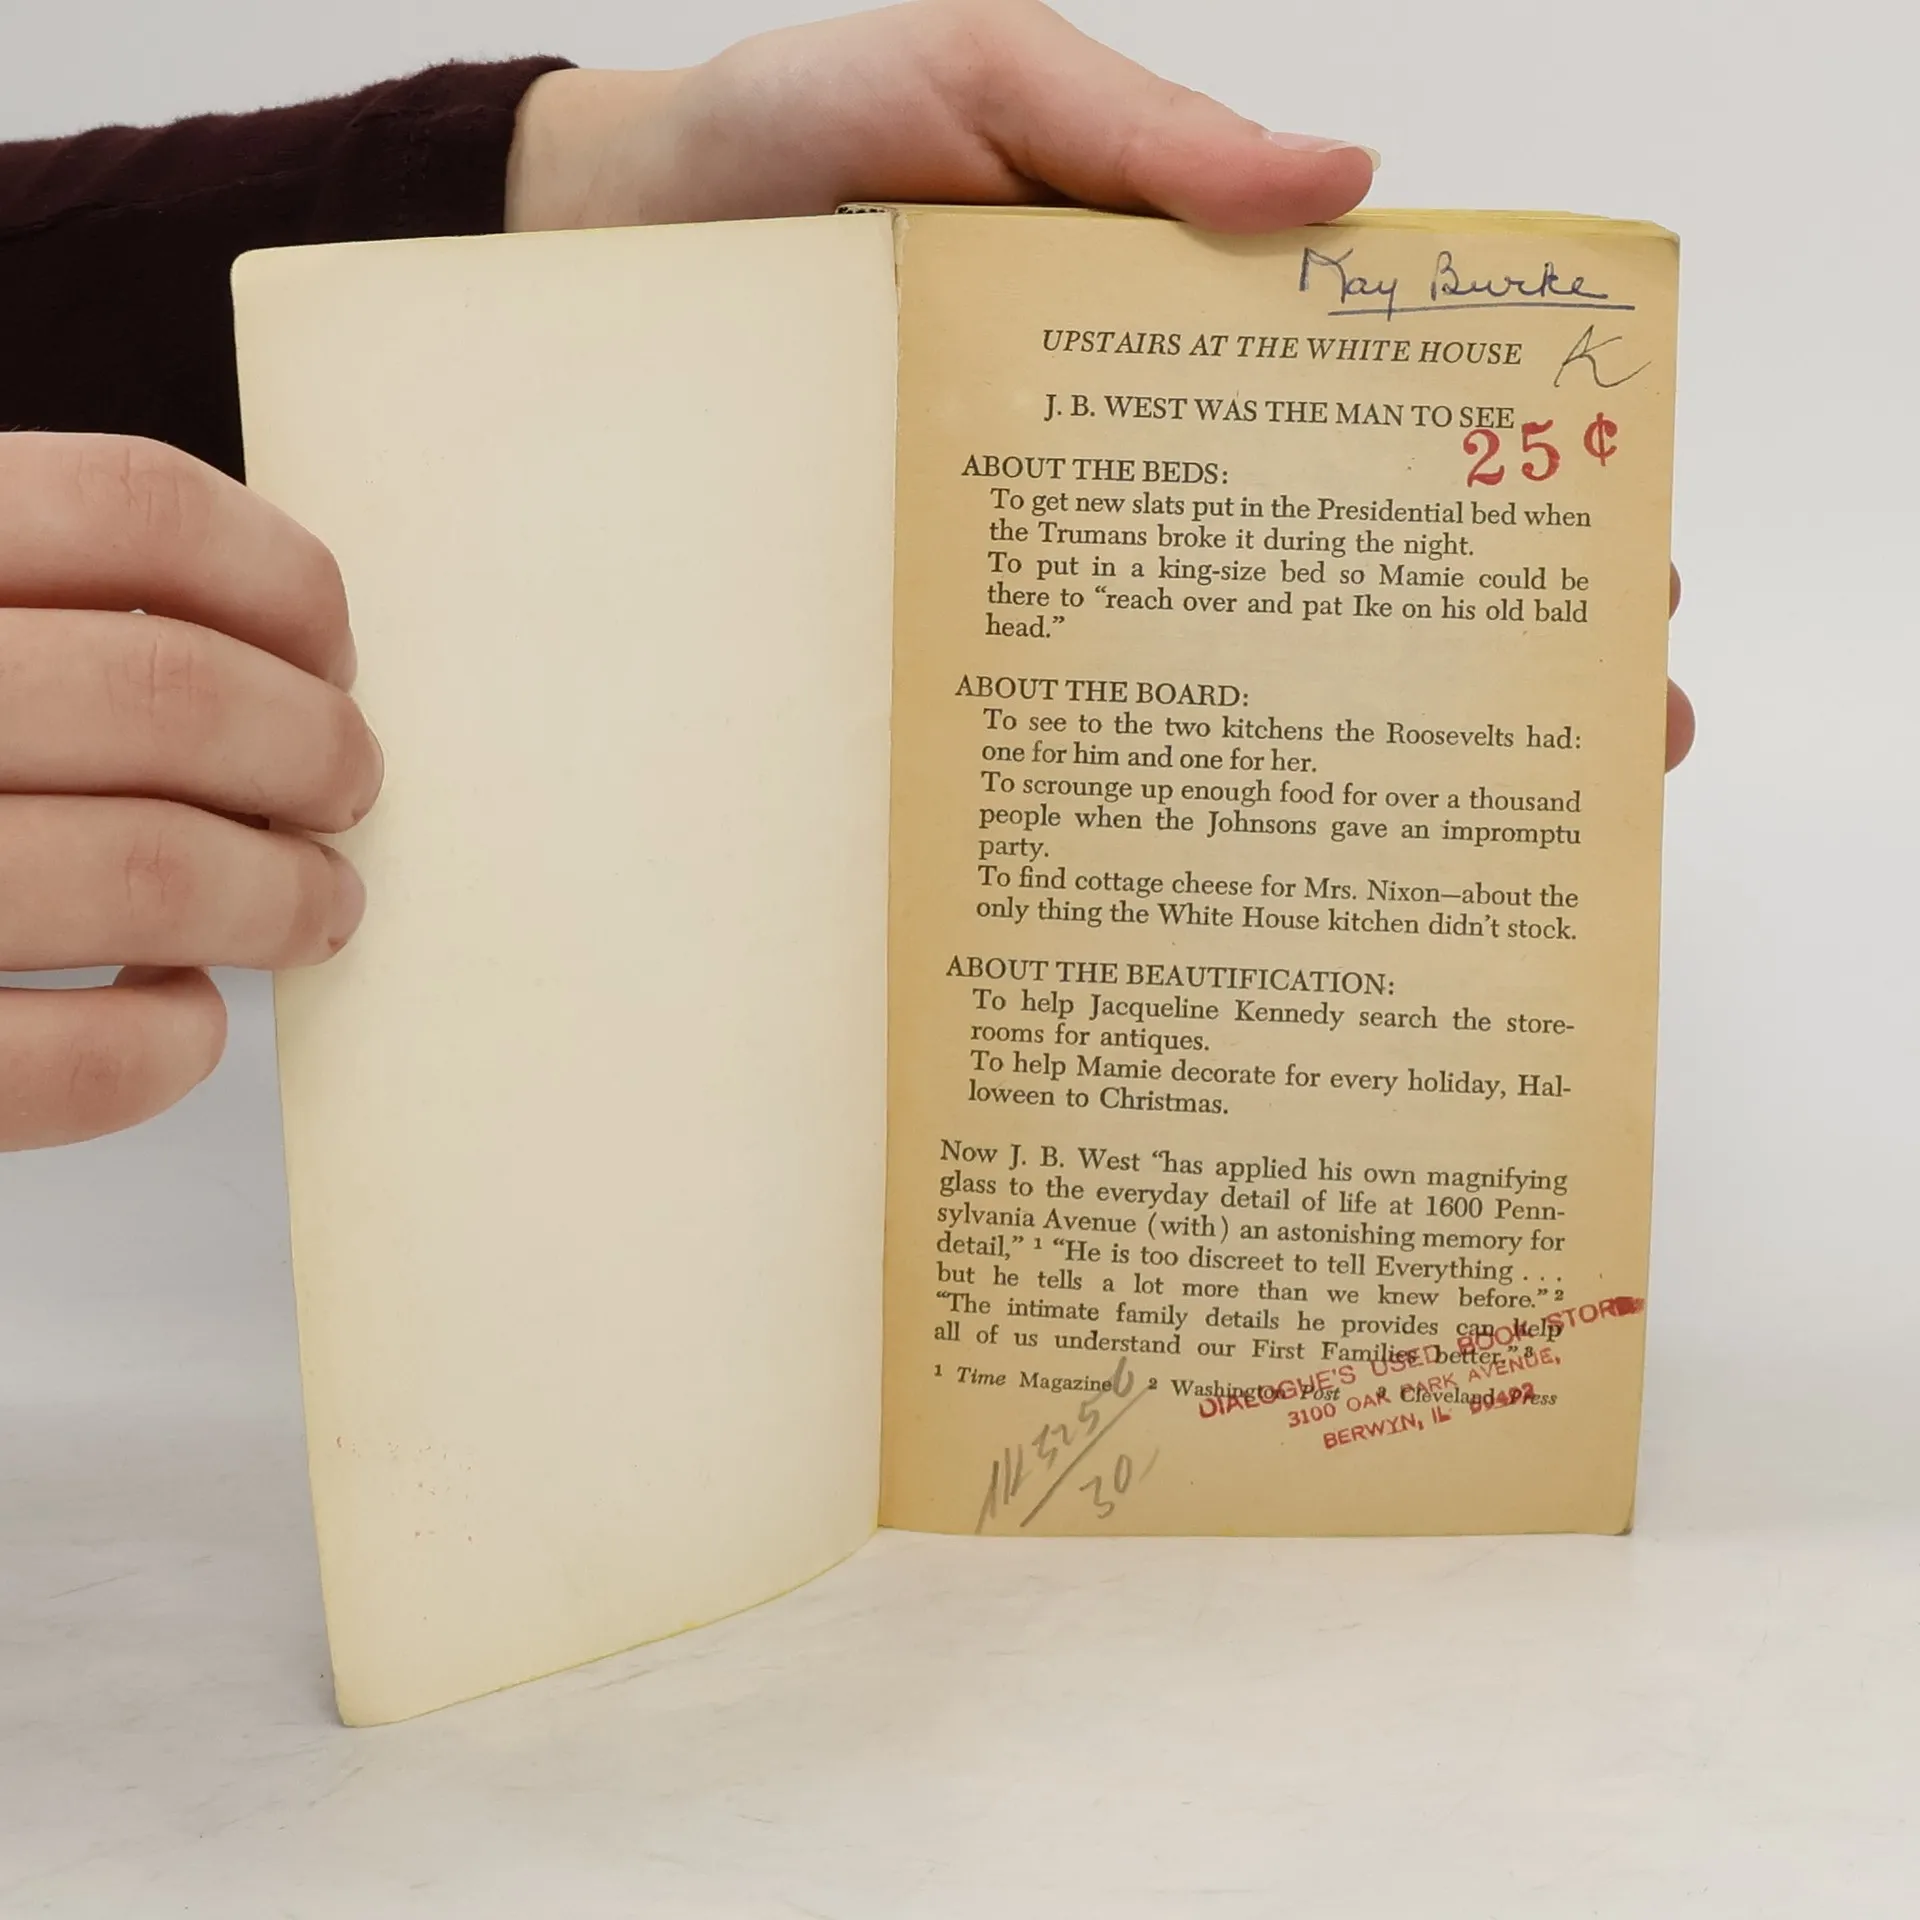 May Burke
UPSTAIRS AT THE WHITE HOUSE
K
J. B. WEST WAS THE MAN TO SEE
25¢
ABOUT THE BEDS:
To get new slats put in the Presidential bed when
the Trumans broke it during the night.
To put in a king-size bed so Mamie could be
there to “reach over and pat Ike on his old bald
head.”
ABOUT THE BOARD:
To see to the two kitchens the Roosevelts had:
one for him and one for her.
To scrounge up enough food for over a thousand
people when the Johnsons gave an impromptu
party.
To find cottage cheese for Mrs. Nixon—about the
only thing the White House kitchen didn’t stock.
ABOUT THE BEAUTIFICATION:
To help Jacqueline Kennedy search the store-
rooms for antiques.
To help Mamie decorate for every holiday, Hal-
loween to Christmas.
Now J. B. West “has applied his own magnifying
glass to the everyday detail of life at 1600 Penn-
sylvania Avenue (with) an astonishing memory for
detail,” ¹ “He is too discreet to tell Everything . . .
but he tells a lot more than we knew before.” ²
“The intimate family details he provides can help
all of us understand our First Families better.” ³
¹ Time Magazine ² Washington Post ³ Cleveland Press
DIALOGUE'S USED BOOK STORE
3100 OAK PARK AVENUE,
BERWYN, IL 60402
30